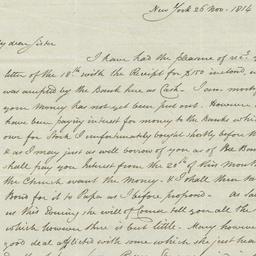 New York 26 Nov. 1814
My dear Sister
I have had the pleasure of recg.
letter of the 18th with the Receipt for $150 inclosed, w
was accepted by the Bank here as Cash. I am sorry
your money has not yet been put out. However
have been paying interest for money to the Banks which
owe for Stock I unfortunately bought shortly before th
& as I may just as well borrow of you as of the Ban
shall pay you Interest from the 20th of this Month
the Church want the Money. & I shall then
Bond for it to Papa as I before proposed - as Sa
us this Evening she will of Course tell you all the
which however there is but little. Mary however
good deal afflicted with some which she just hea